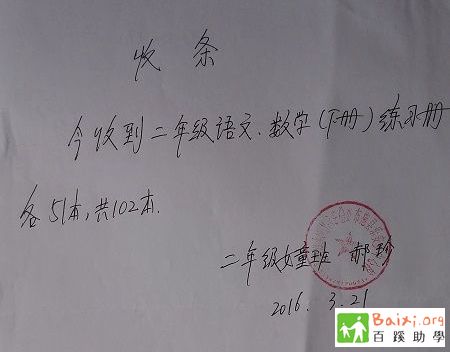 收条
今收到二年级语文、数学(下册)练习册
各51本,共102本.
二年级女童班 郝玲
2016.3.21
Baixi.org
百蹊助學